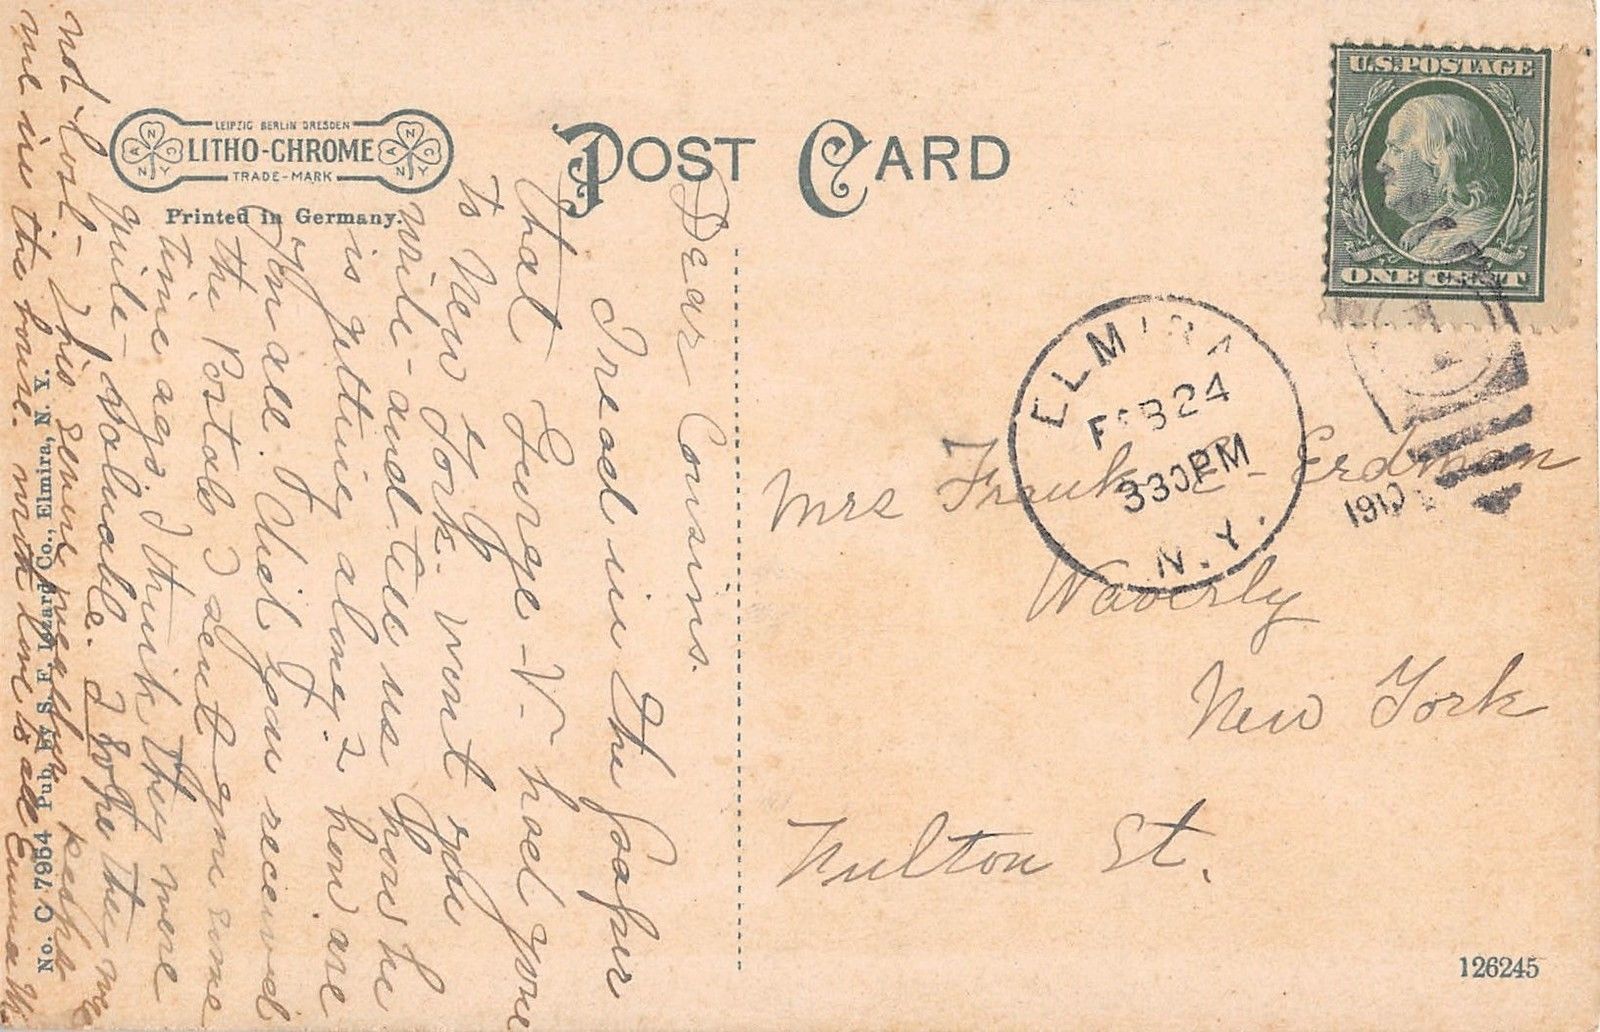 LEIPZIG BERLIN DRESDEN
LITHO-CHROME
TRADE-MARK
Printed in Germany.
POST CARD
U.S. POSTAGE
ONE CENT
ELMIRA
FEB 24
330 PM
N.Y.
1910
Mrs Frank E Erdman
Waverly
New York
Fulton St.
126245
Dear Cousins.
I read in the paper
that George V had gone
to New York. wont you
write and tell us how he
is getting along? how are
you all. Did you received
the Postals I sent you some
time ago. I think they were
quite valuable. I hope they were
not lost. This some
me in the house. much love to all Emma
No. C 7954 Pub. by S. F. Iszard Co., Elmira, N. Y.